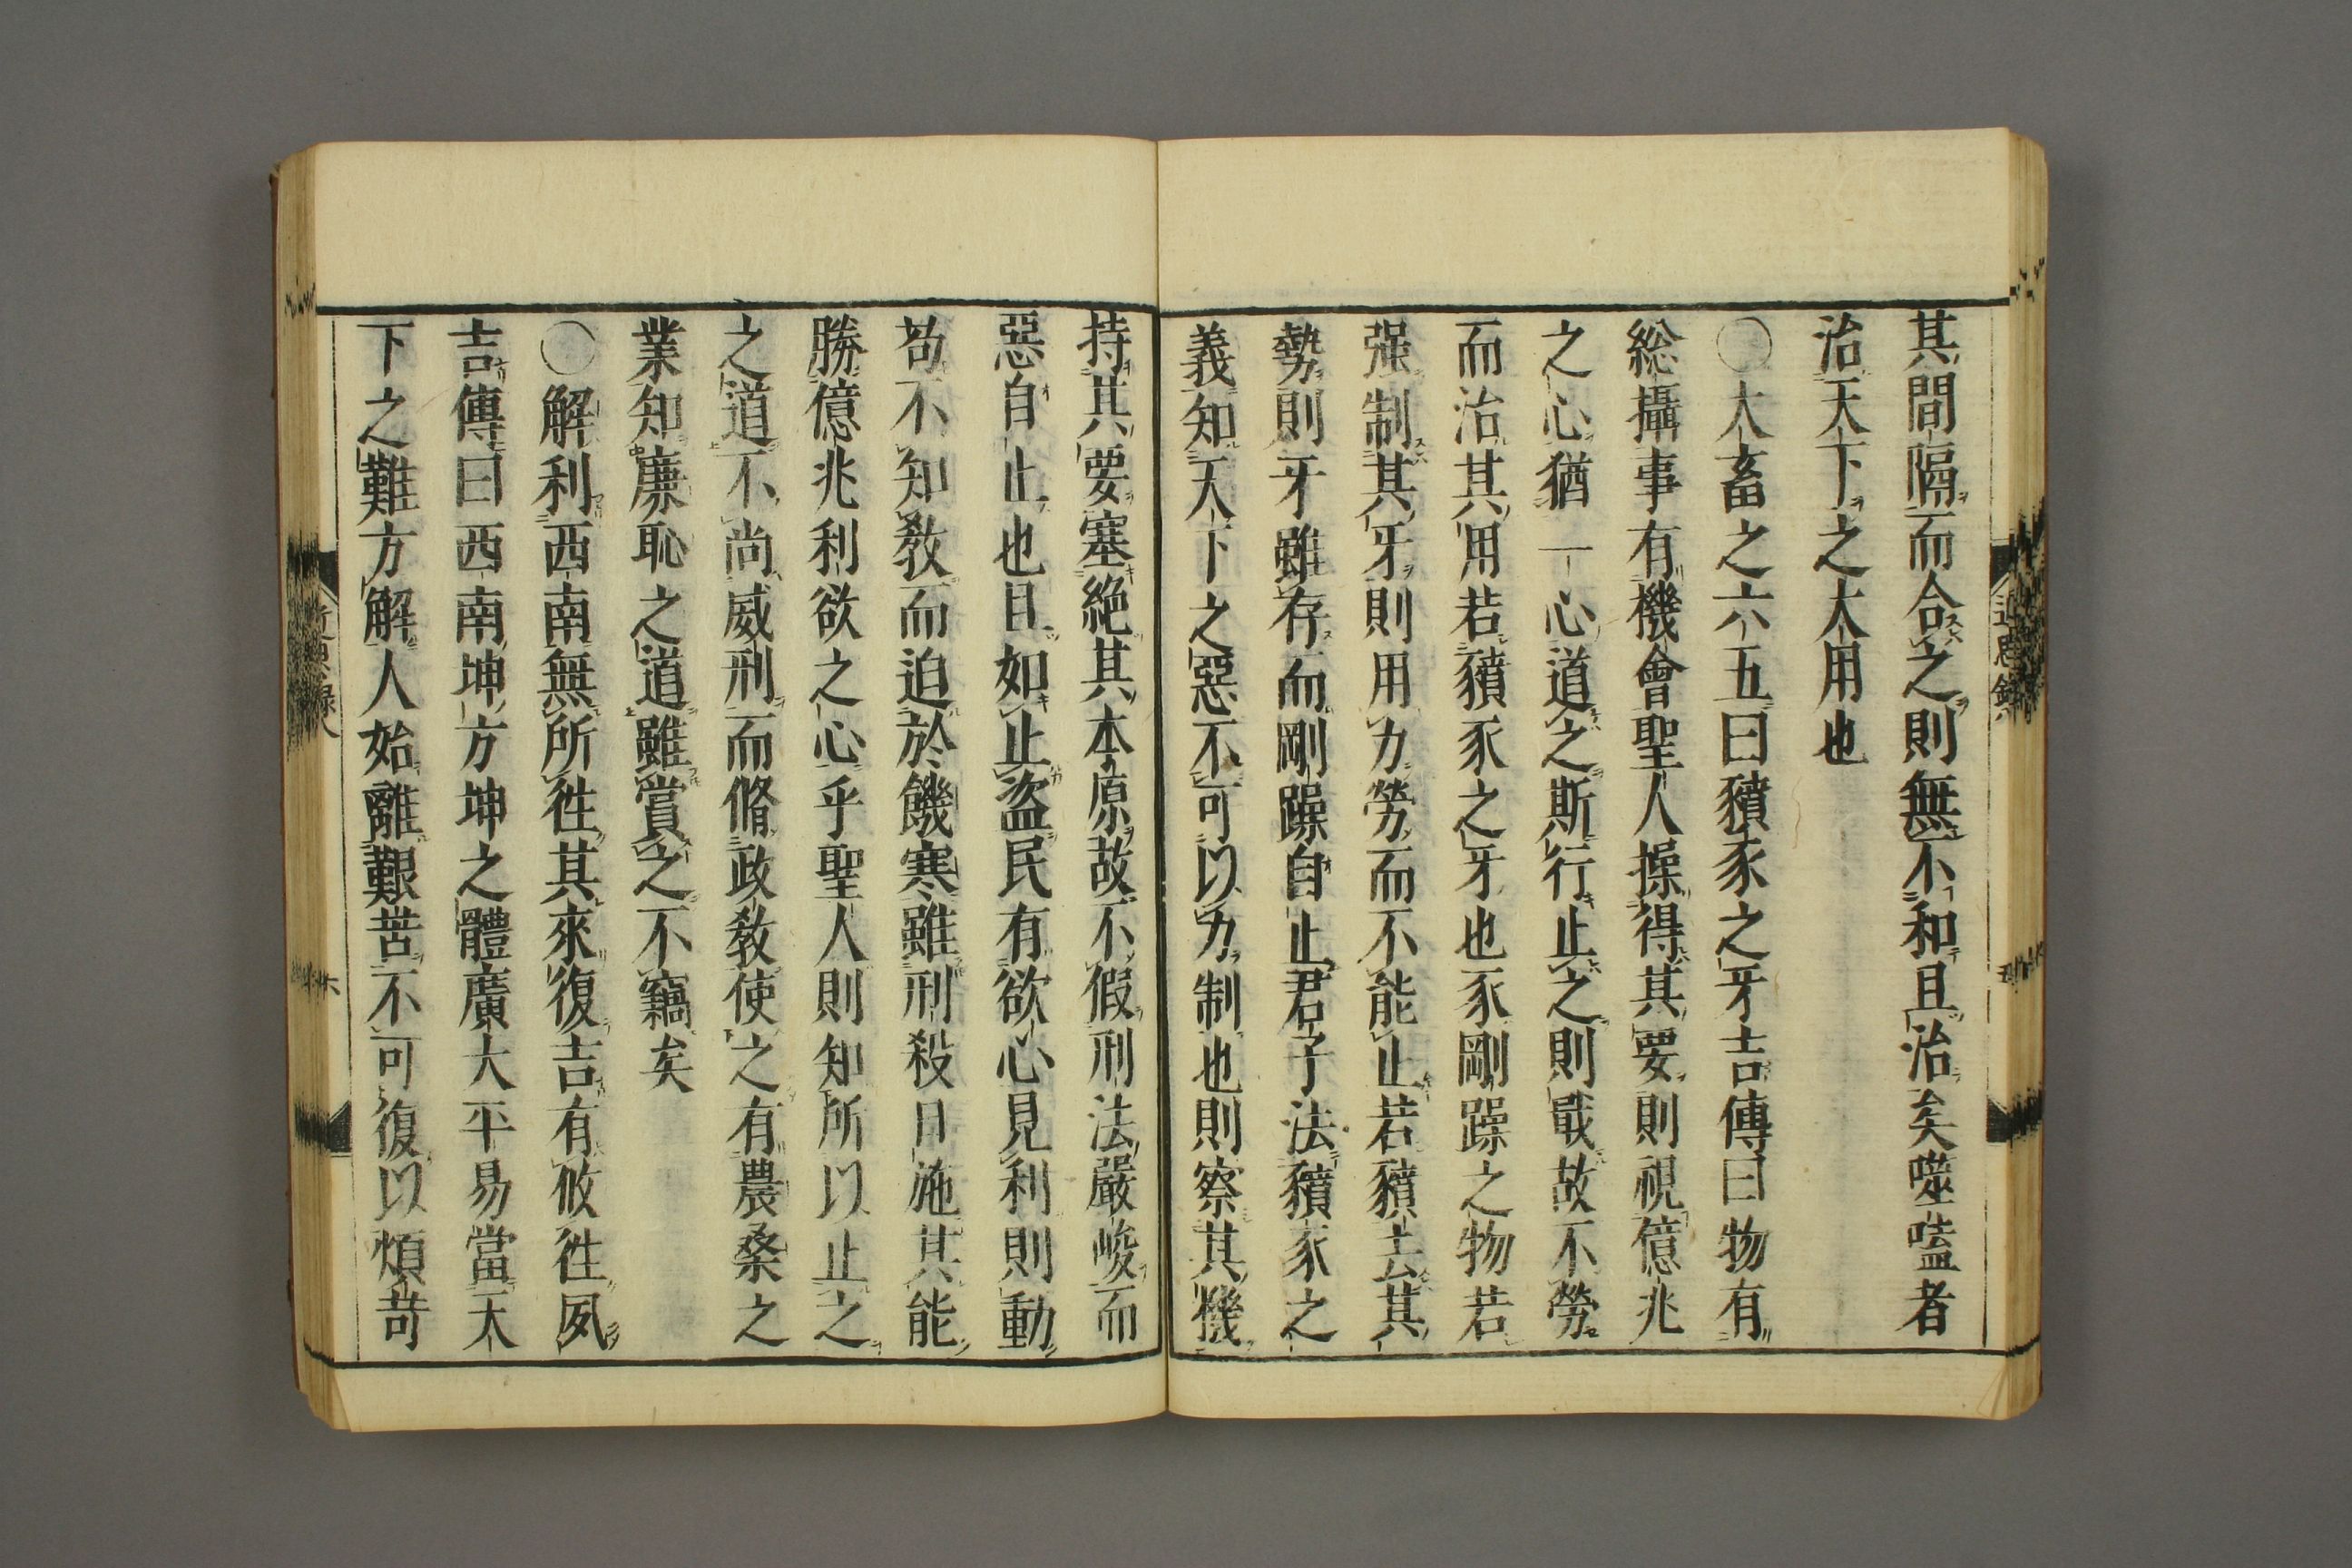 其間隔而合之則無不和且治矣噬嗑者
治天下之大用也
○大畜之六五曰豶豕之牙吉傳曰物有
総攝事有機會聖人操得其要則視億兆
之心猶一心道之斯行止之則戢故不勞
而治其用若豶豕之牙也豕剛躁之物若
强制其牙則用力勞而不能止若豶去其
勢則牙雖存而剛躁自止君子法豶豕之
義知天下之惡不可以力制也則察其機
持其要塞絶其本原故不假刑法嚴峻而
惡自止也且如止盗民有欲心見利則動
苟不知敎而迫於饑寒雖刑殺日施其能
勝億兆利欲之心乎聖人則知所以止之
之道不尚威刑而脩政敎使之有農桑之
業知廉恥之道雖賞之不竊矣
○解利西南無所往其來復吉有攸往夙
吉傳曰西南坤方坤之體廣大平易當天
下之難方解人始離艱苦不可復以煩苛
近思録八
六